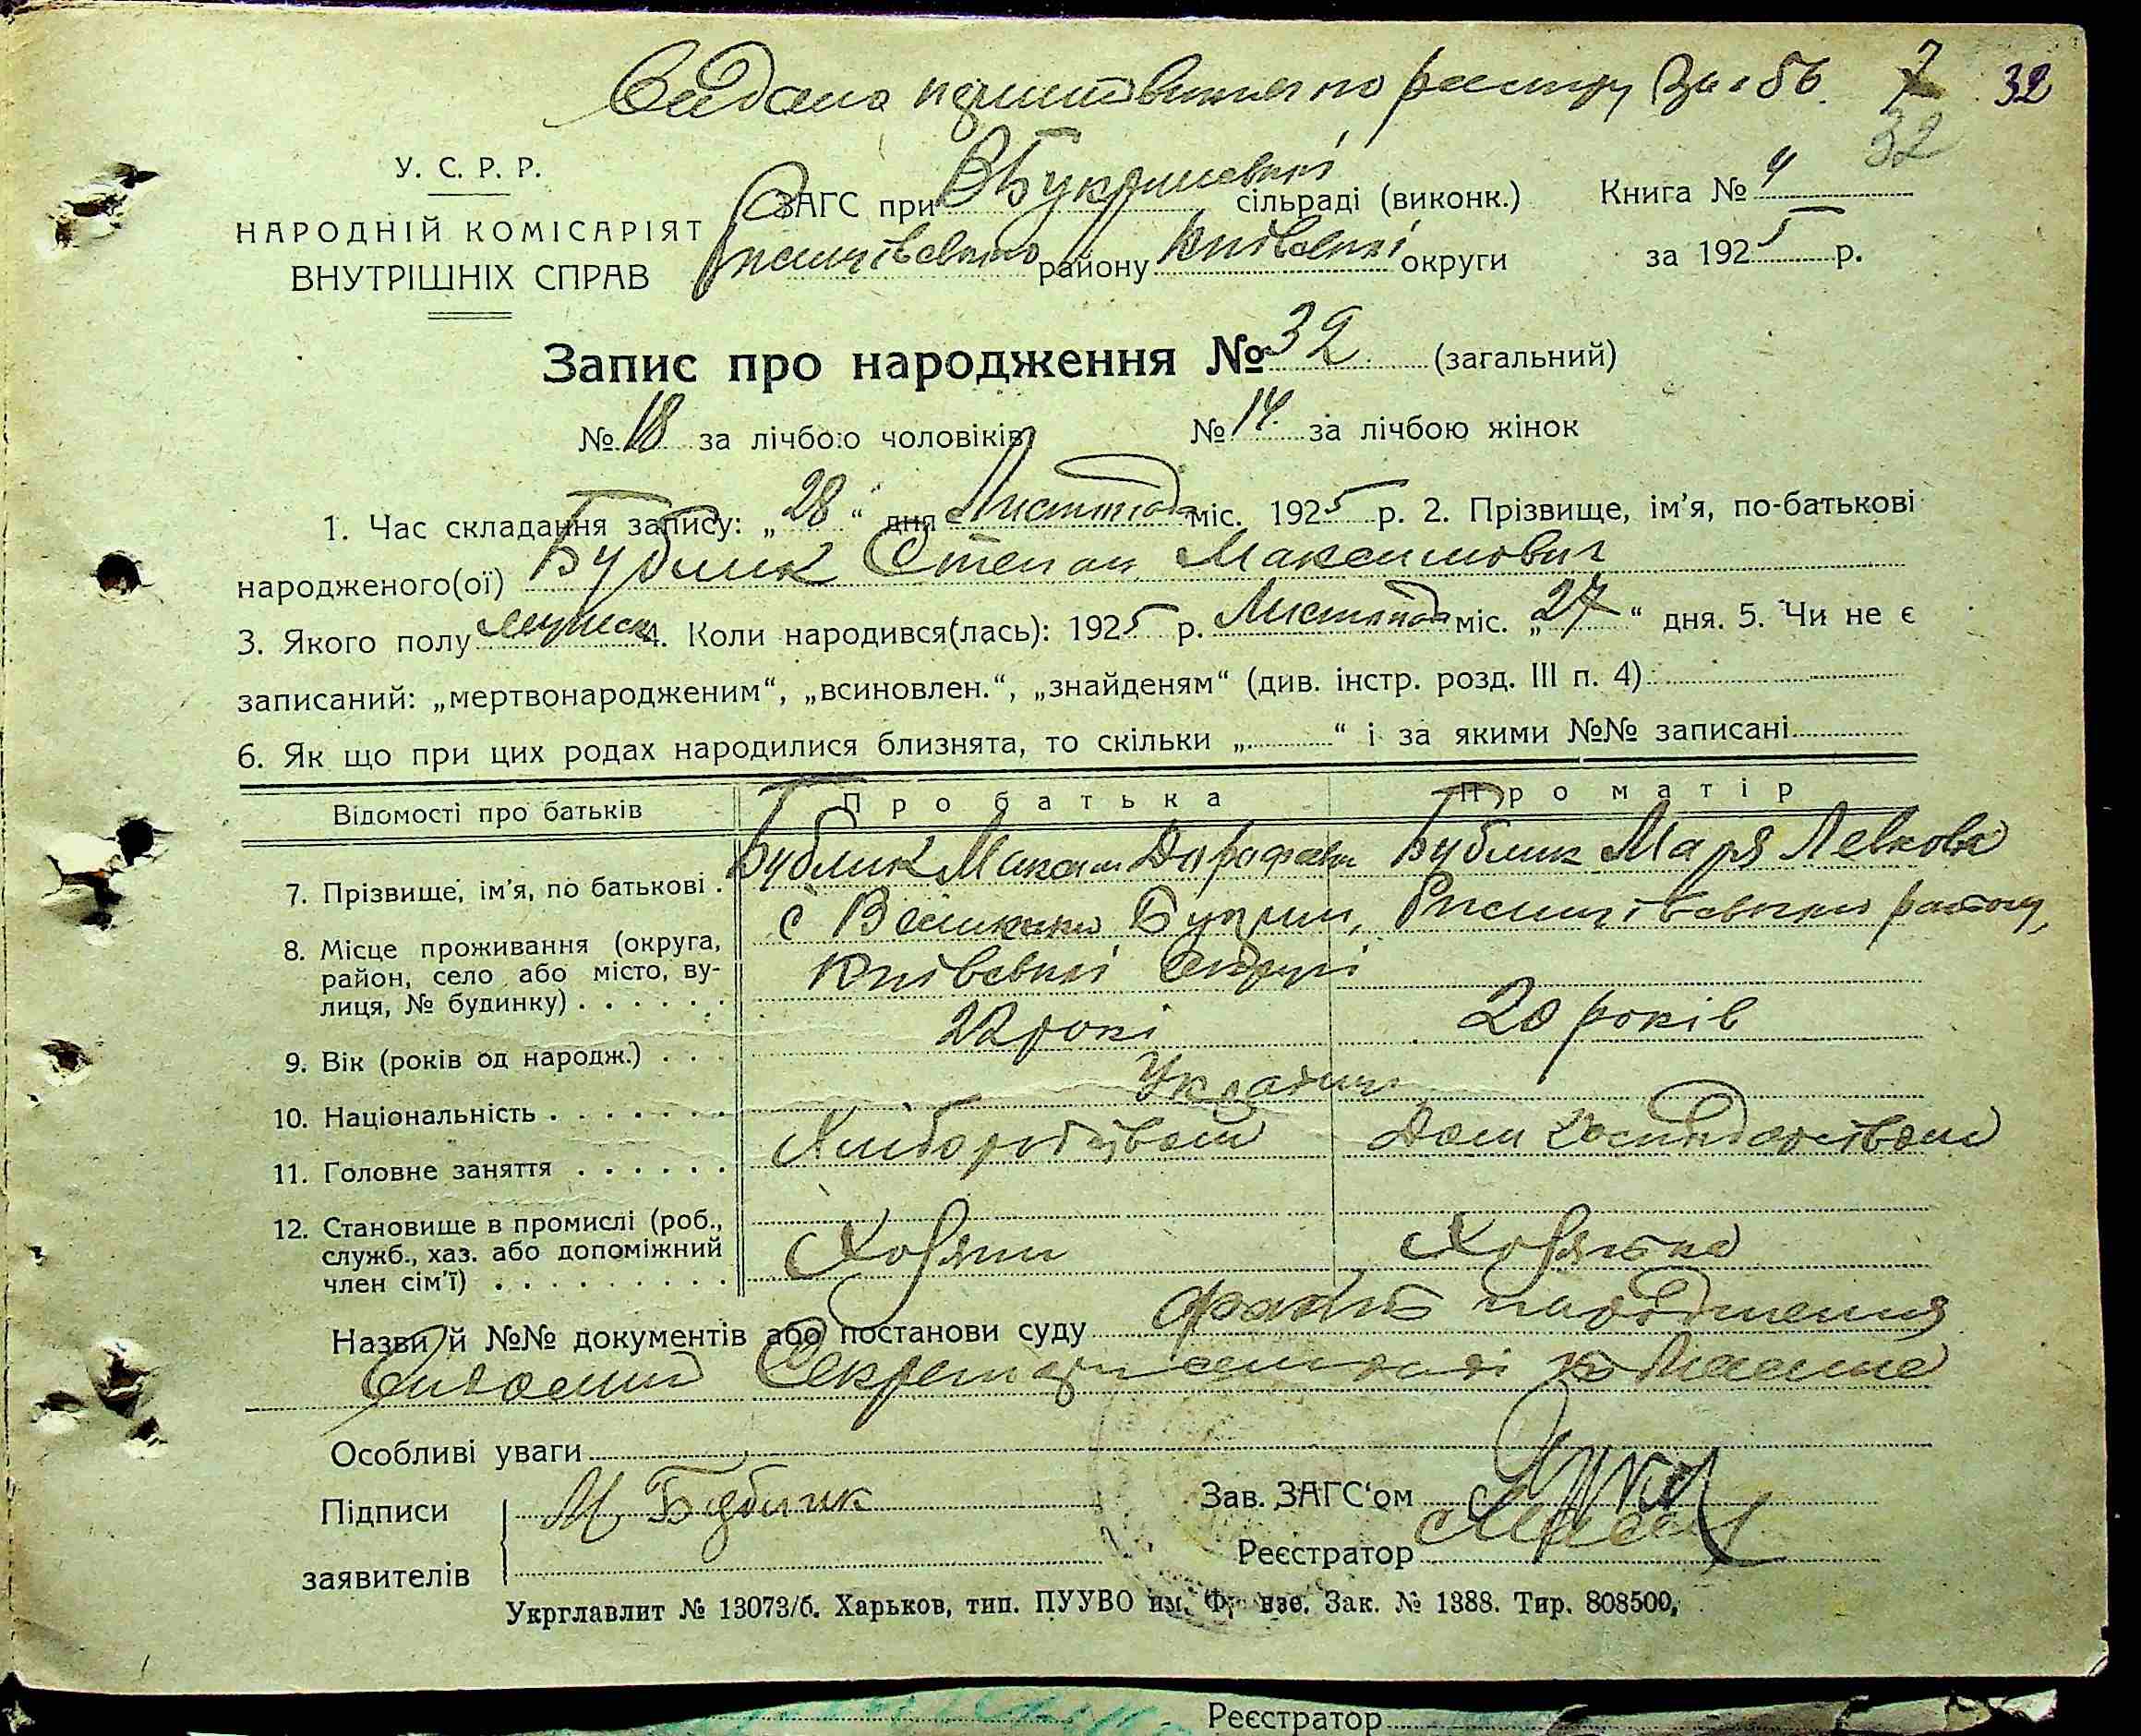 Видано по реєстру За № 56. 7 32
32
У. С. Р. Р.
НАРОДНІЙ КОМІСАРІЯТ
ВНУТРІШНІХ СПРАВ
ЗАГС при ВБукринській сільраді (виконк.) Книга № 4
Ржищівського району Київської округи за 1925 р.
Запис про народження № 32 (загальний)
№ 18 за лічбою чоловіків № 14. за лічбою жінок
1. Час складання запису: „28“ дня Листопада міс. 1925 р. 2. Прізвище, ім'я, по-батькові
народженого(ої) Бублик Степан Максимович
3. Якого полу мужеск 4. Коли народився(лась): 1925 р. Листопада міс. „27“ дня. 5. Чи не є
записаний: „мертвонародженим“, „всиновлен.“, „знайденям“ (див. інстр. розд. III п. 4)
6. Як що при цих родах народилися близнята, то скільки „ “ і за якими №№ записані
Відомості про батьків Про батька Про матір
7. Прізвище, ім'я, по батькові . Бублик Максим Дорофеев Бублик Марія Левкова
8. Місце проживання (округа, район, село або місто, вулиця, № будинку) . . . . . . с Великий Букрин, Ржищівського району,
Київської округи
9. Вік (років од народж.) . . . 22 роки 20 років
10. Національність . . . . . . . Українці
11. Головне заняття . . . . . . Хліборобством Дом Господарством
12. Становище в промислі (роб., служб., хаз. або допоміжний член сім'ї) . . . . . . . . . Хозяин Хозяйка
Назви й №№ документів або постанови суду факт народження
Секретарю сельради
Особливі уваги
Підписи М Бублик Зав. ЗАГС'ом
заявителів Реєстратор
Укрглавлит № 13073/б. Харьков, тип. ПУУВО им. Фрунзе. Зак. № 1388. Тир. 808500,
Реєстратор